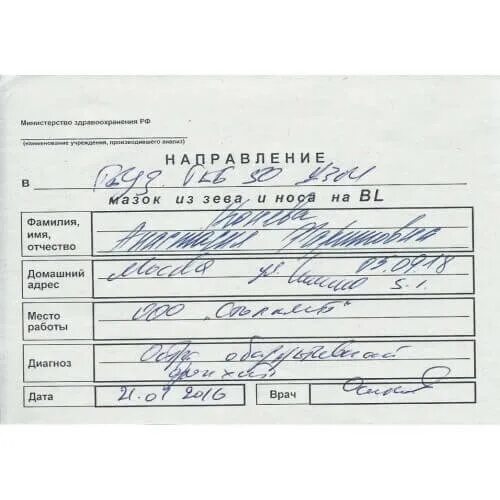 Министерство здравоохранения РФ
(наименование учреждения, производившего анализ)
НАПРАВЛЕНИЕ
В ГБУЗ ГКБ 50 ДЗМ
мазок из зева и носа на BL
Фамилия, имя, отчество
Анастасия
Домашний адрес Москва ул. 03.09.18
Место работы ООО
Диагноз Остр. обструктивный
бронхит
Дата 21.01 2016 Врач